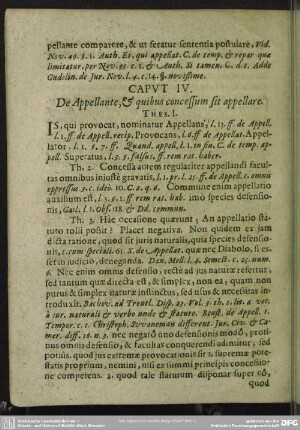 pellante comparere, & ut feratur sententia postulare, Vid.
Nov. 49. §. 1. Auth. Et. qui appellat. C. de temp. & repar quæ
limitatur, per Nov. 93. c. 1. & Auth. Si tamen. C. d. t. Adde
Gudelin. de Jur. Nov. l. 4. c. 14. §. novissime.
CAPVT IV.
De Appellante, & quibus concessum sit appellare.
THES. I.
IS, qui provocat, nominatur Appellans, l. 13. ff. de Appell.
l. 1. ff. de Appell. recip. Provocans, l. 6. ff. de Appellat. Appel-
lator. l. 1. §. 7. ff. Quand. appell. l. 1. in fin. C. de temp. ap-
pell. Superatus, l. 3. §. falsus. ff. rem rat. haber.
Th. 2. Concessa autem regulariter appellandi facultas
omnibus injuste gravatis, l. 1. pr. l. 25. ff. de Appell. c. omnis
oppressus 3. c. ideo. 10. C. 2. q. 6. Commune enim appellatio
auxilium est, l. 3. §. 1. ff. rem rat. hab. imò species defensio-
nis, Gail. l. 1. Obs. 118. & Dd. commun.
Th. 3. Hâc occasione quærunt; An appellatio statuto
tolli possit? Placet negativa. Non quidem ex jam
dicta ratione, quod sit juris naturalis, quia species defensio-
nis, c. cum speciali. 61. X. de Appellat. quæ nec Diabolo, si es-
set in judicio, deneganda. Dan. Moll. l. 4. Semest. c. 25. num.
6. Nec enim omnis defensio, rectè ad jus naturæ refertur,
sed tantum quæ directa est, & simplex, non ea, quam non
purus & simplex naturæ instinctus, sed usus & necessitas in-
troduxit. Bachov. ad Treutl. Disp. 23. Vol. 3. th. 1. lit. a. vot.
à jur. naturali & verbo unde & statuto. Reusn. de appell. 1.
Tempor. c. 1. Christoph. Sturzneman different. Jur. Civ. & Ca-
mer. diff. 16. n. 3. nec negatô uno defensionis modô, proti-
nus omnis defensio, & facultas conquerendi adimitur; sed
potiùs, quod jus extremæ provocationis sit τ supremæ pote-
statis proprium, nemini, nisi ex summi principis concessio-
ne competens. 2. quod tale statutum disponat super eô,
quod